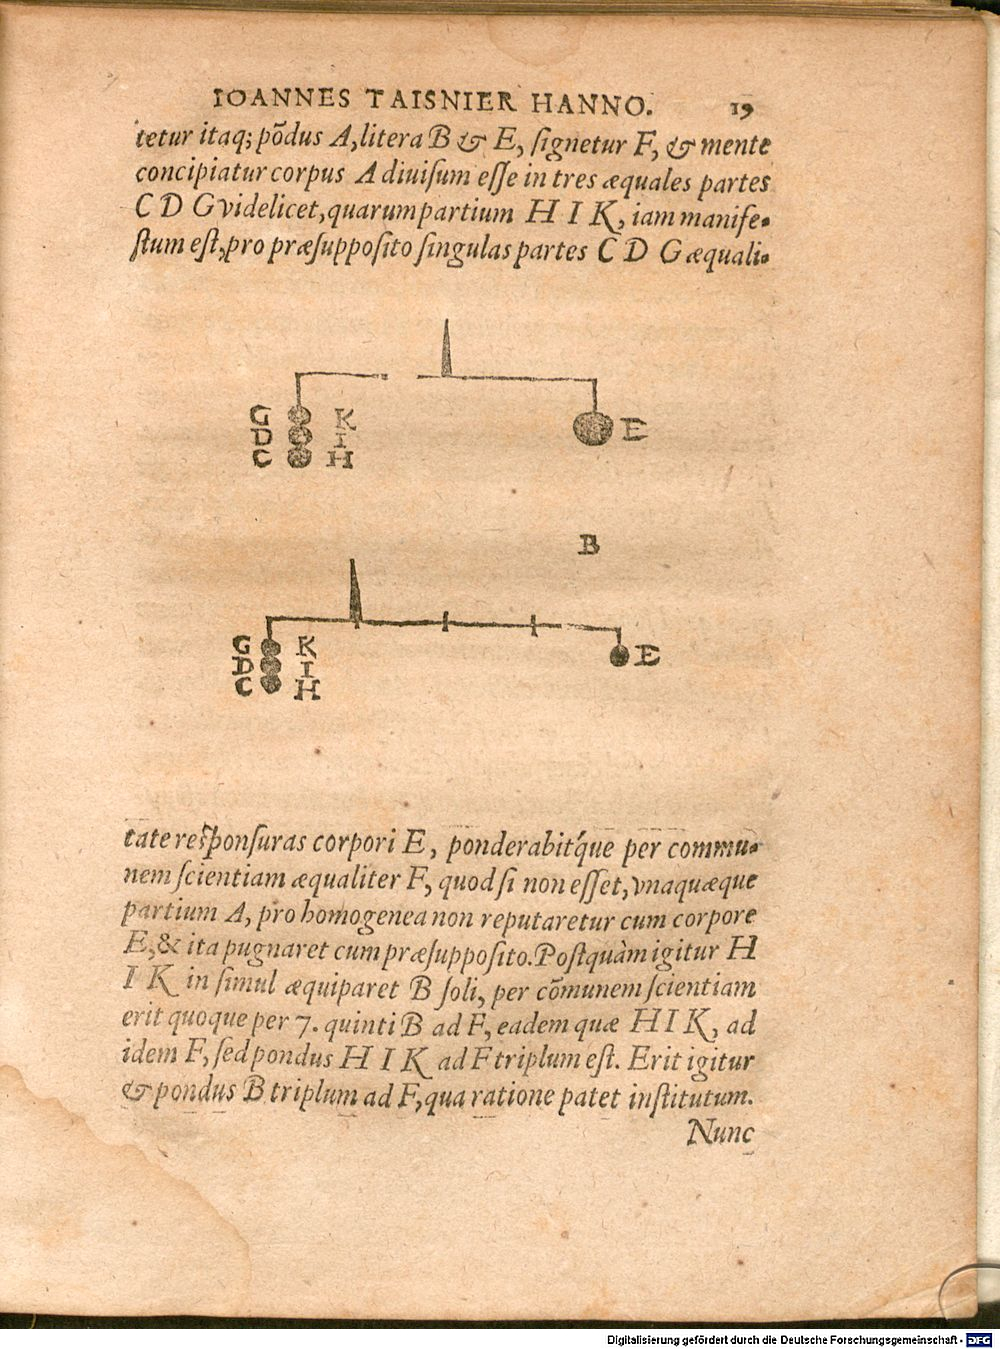 IOANNES TAISNIER HANNO. 19
tetur itaq; põdus A, litera B & E, ſignetur F, & mente
concipiatur corpus A diuiſum eſſe in tres æquales partes
C D G videlicet, quarum partium H I K, iam manife-
ſtum eſt, pro præſuppoſito ſingulas partes C D G æquali-
G K
D I E
C H
B
G K
D I E
C H
tate reſponſuras corpori E, ponderabit'que per commu-
nem ſcientiam æqualiter F, quod ſi non eſſet, vnaquæque
partium A, pro homogenea non reputaretur cum corpore
E, & ita pugnaret cum præſuppoſito. Poſtquàm igitur H
I K in ſimul æquiparet B ſoli, per cõmunem ſcientiam
erit quoque per 7. quinti B ad F, eadem quæ H I K, ad
idem F, ſed pondus H I K ad F triplum eſt. Erit igitur
& pondus B triplum ad F, qua ratione patet inſtitutum.
Nunc
Digitalisierung gefördert durch die Deutsche Forschungsgemeinschaft - DFG